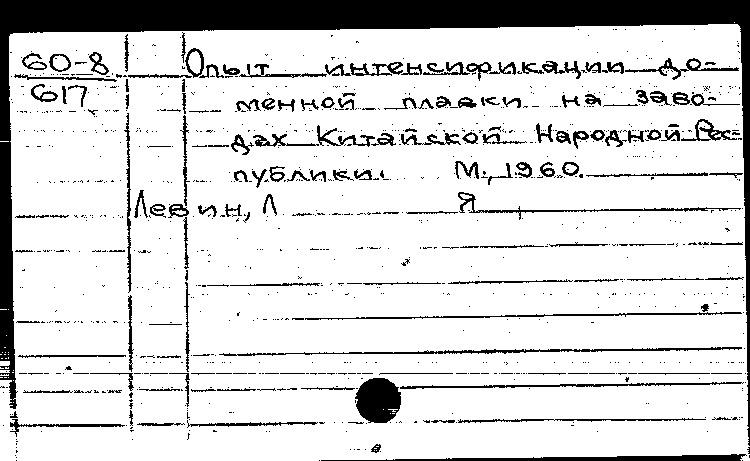 60-8
617
Опыт интенсификации до-
менной плавки на заво-
дах Китайской Народной Рес-
публики. М., 1960.
Левин, Л Я